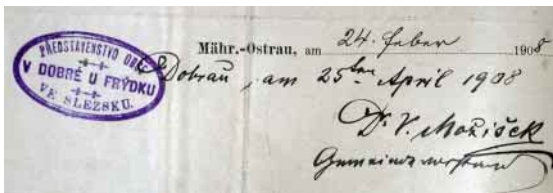 PŘEDSTAVENSTVO OBCE
V DOBRÉ U FRÝDKU
VE SLEZSKU.
Mähr.-Ostrau, am 24. feber 1908
Dobrau, am 25ten April 1908
Dr. V. Možíšek
Gemeindevorstand